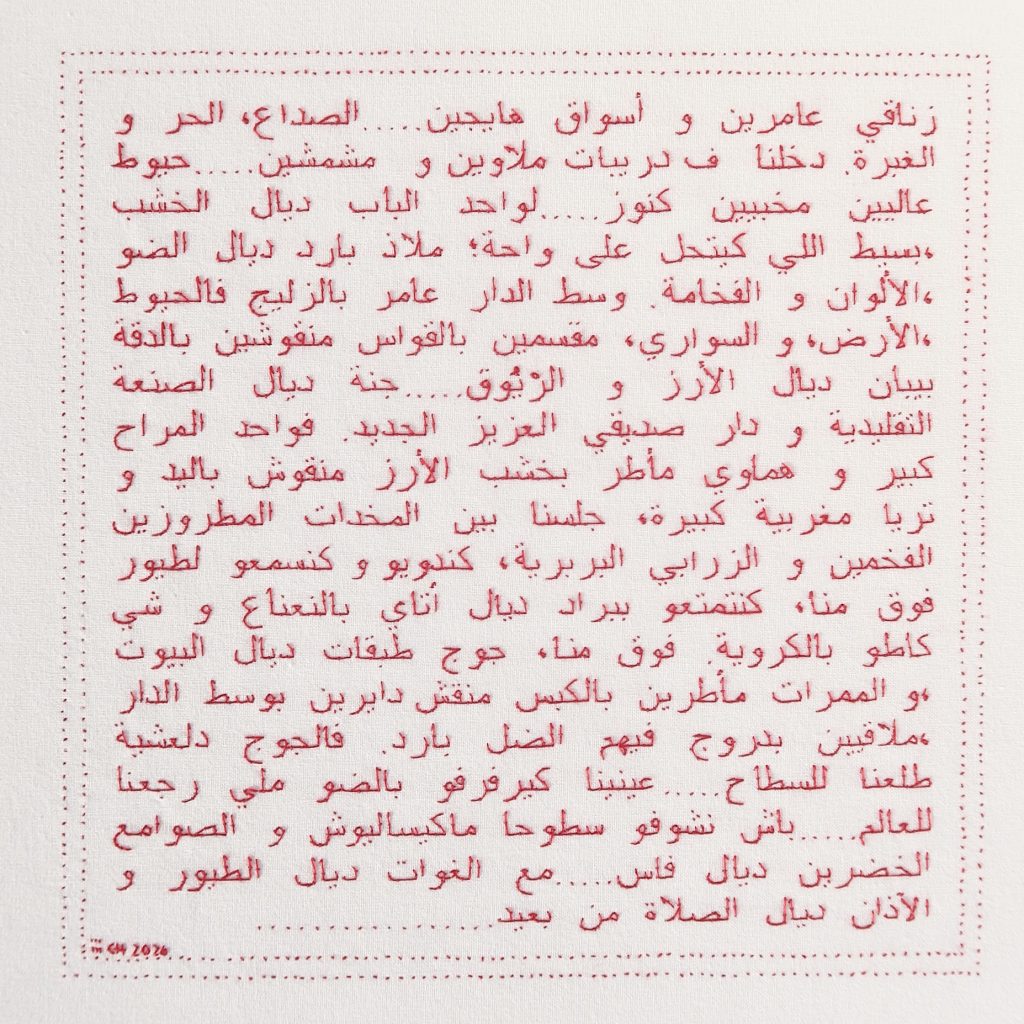 زناقي عامرين و أسواق هايجين.....الصداع، الحر و
الغبرة. دخلنا ف دريبات ملاوين و مشمشين.....حيوط
عاليين مخبيين كنوز.....لواحد الباب ديال الخشب
،بسيط اللي كيتحل على واحة؛ ملاذ بارد ديال الضو
،الألوان و الفخامة. وسط الدار عامر بالزليج فالحيوط
،الأرض، و السواري، مقسمين بالقواس منقوشين بالدقة
بيبان ديال الأرز و الرّيُوق.....جنة ديال الصنعة
التقليدية و دار صديقي العزيز الجديد. فواحد المراح
كبير و هماوي مأطر بخشب الأرز منقوش باليد و
تريا مغربية كبيرة، جلسنا بين المخدات المطروزين
الفخمين و الزرابي البربرية، كندويو و كنسمعو لطيور
فوق منا، كنتمتعو ببراد ديال أتاي بالنعناع و شي
كاطو بالكروية. فوق منا، جوج طبقات ديال البيوت
،و الممرات مأطرين بالكبس منقش دايرين بوسط الدار
،ملاقيين بدروج فيهم الضل بارد. فالجوج دلعشية
طلعنا للسطاح.....عينينا كيرفرفو بالضو ملي رجعنا
للعالم.....باش نشوفو سطوحا ماكيساليوش و الصوامع
الخضرين ديال فاس.....مع الغوات ديال الطيور و
الآذان ديال الصلاة من بعيد..................
CH 2026